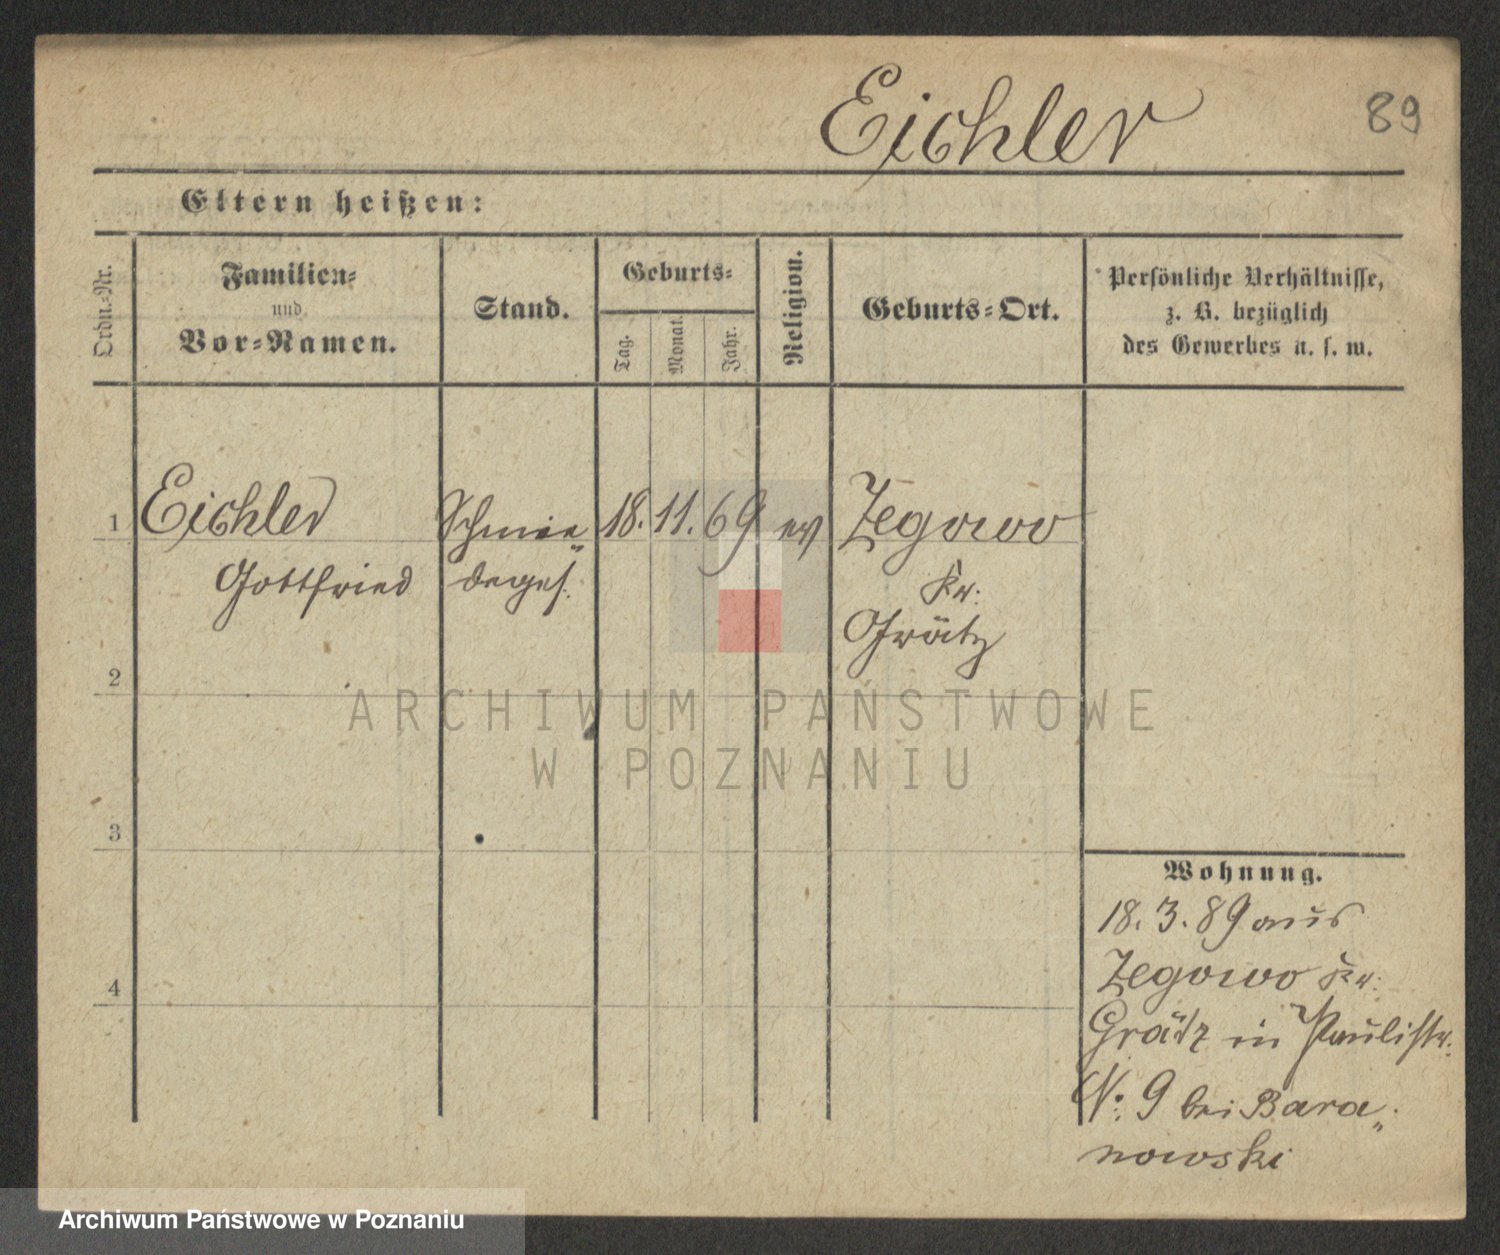 Eichler
89
Eltern heißen:
Ordn.-Nr.
Familien-
und
Vor-Namen.
Stand.
Geburts-
Tag.
Monat.
Jahr.
Religion.
Geburts-Ort.
Persönliche Verhältnisse,
z. B. bezüglich
des Gewerbes u. s. w.
1 Eichler Schmie„ 18. 11. 69 ev Zegowo
Gottfried deges. Kr:
Grätz
2
ARCHIWUM PAŃSTWOWE
W POZNANIU
3
Wohnung.
18. 3. 89 aus
Zegowo Kr:
4
Grätz in Paulistr.
No: 9 bei Bara„
nowski
Archiwum Państwowe w Poznaniu